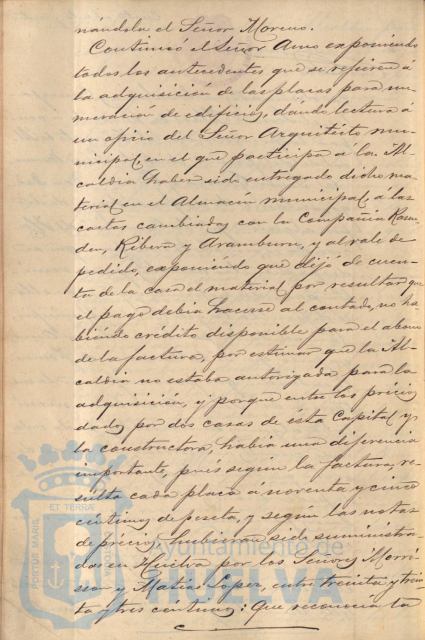 nándola el Señor Moreno.
Continuó el Señor Amo exponiendo
todos los antecedentes que se refieren á
la adquisición de las placas para nu-
meración de edificios, dando lectura á
un oficio del Señor Arquitecto mu-
nicipal en el que participa á la Al-
caldía haber sido entregado dicho ma-
terial en el Almacén municipal, á las
cartas cambiadas con la Compañía
Ribera y Aramburu, y al vale de
pedido, exponiendo que dejó de cuen-
ta de la casa el material por resultar que
el pago debía hacerse al contado, no ha-
biendo crédito disponible para el abono
de la factura, por estimar que la Al-
caldía no estaba autorizada para la
adquisición, y porque entre los precios
dados por dos casas de ésta Capital y
la constructora, había una diferencia
importante, pues según la factura, re-
sulta cada placa á noventa y cinco
céntimos de peseta, y según las notas
de precios, hubieran sido suministra-
das en Huelva por los Señores Morri-
sson y Matías Lopez, entre treinta y trein-
ta y tres céntimos: Que reconocía la
Ayuntamiento de
HUELVA
PORTUS MARIS
ET TERRAE